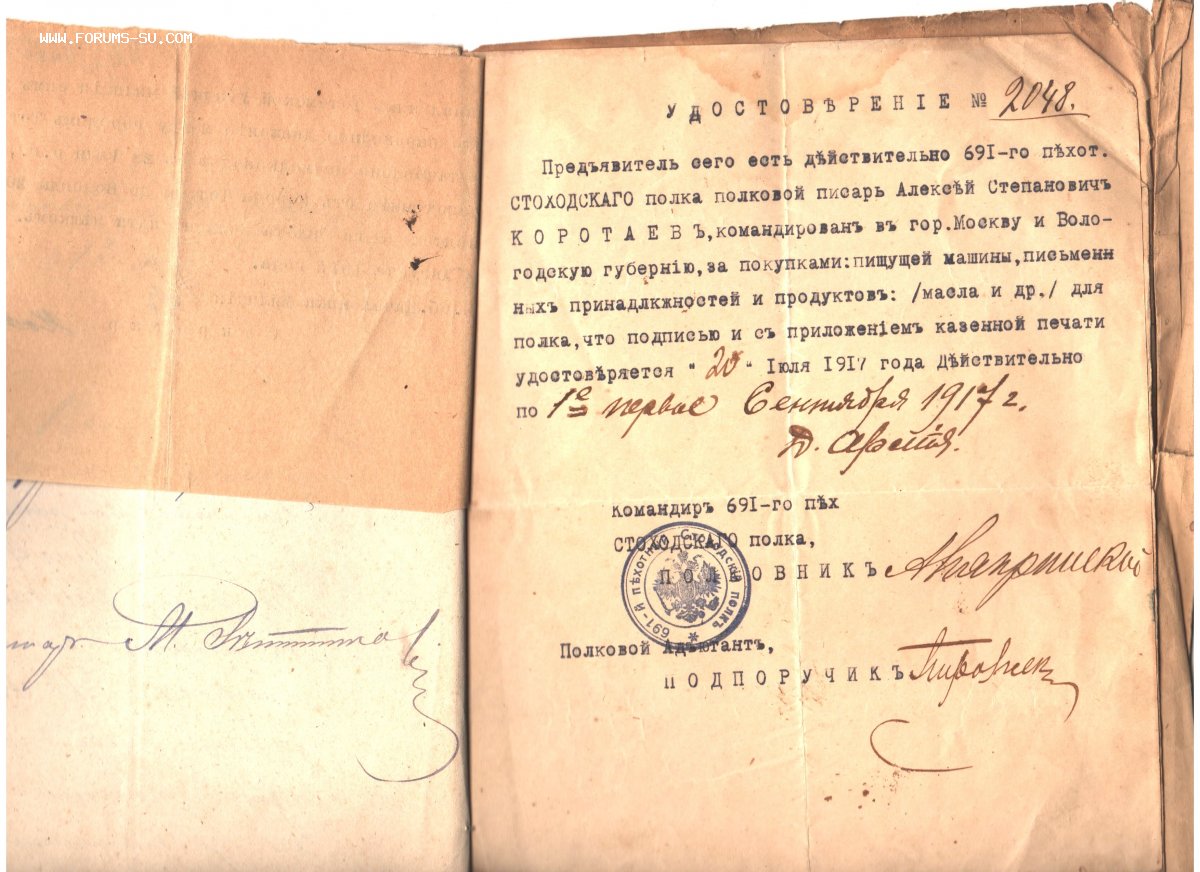 WWW.FORUMS-SU.COM
УДОСТОВѢРЕНІЕ № 2048.
Предъявитель сего есть дѣйствительно 691-го пѣхот.
СТОХОДСКАГО полка полковой писарь Алексѣй Степановичъ
КОРОТАЕВЪ, командированъ въ гор.Москву и Воло-
годскую губернію, за покупками: пищущей машины, письменн
ныхъ принадлжностей и продуктовъ: /масла и др./ для
полка, что подписью и съ приложеніемъ казенной печати
удостовѣряется "20" Іюля 1917 года Дѣйствительно
по 1е первое Сентября 1917 г.
Д. Армія.
Командиръ 691-го пѣх
СТОХОДСКАГО полка,
ПОЛКОВНИКЪ
691-й пѣхотный Стоходскій полкъ
Полковой Адъютантъ,
ПОДПОРУЧИКЪ
М.